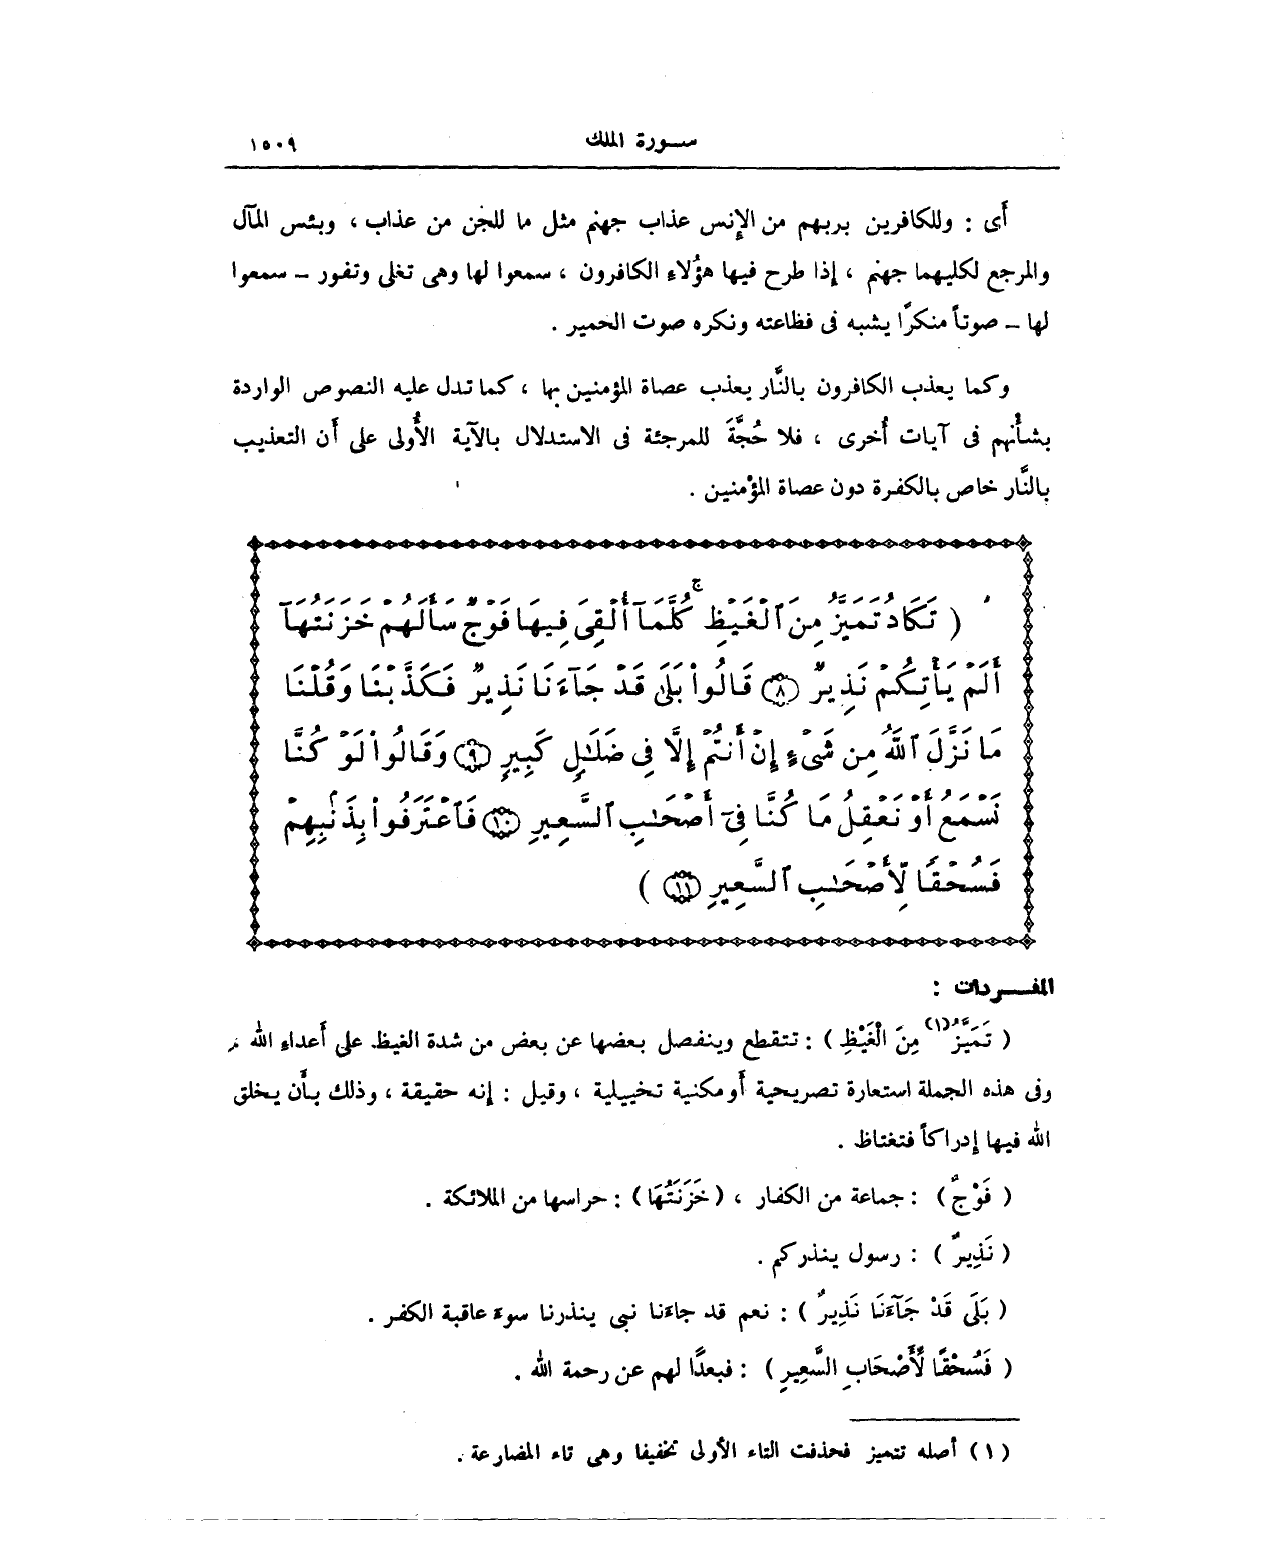 سورة الملك ١٥٠٩
أى : وللكافرين بربهم من الإنس عذاب جهنم مثل ما للجن من عذاب ، وبئس المآل
والمرجع لكليهما جهنم ، إذا طرح فيها هؤُلاءِ الكافرون ، سمعوا لها وهى تغلى وتفور – سمعوا
لها – صوتاً منكرًا يشبه فى فظاعته ونكره صوت الحمير .
وكما يعذب الكافرون بالنَّار يعذب عصاة المؤمنين بها ، كما تدل عليه النصوص الواردة
بشأْنهم فى آيات أُخرى ، فلا حُجَّةَ للمرجئة فى الاستدلال بالآية الأُولى على أَن التعذيب
بالنَّار خاص بالكفرة دون عصاة المؤْمنين .
( تَكَادُ تَمَيَّزُ مِنَ ٱلْغَيْظِ ۚ كُلَّمَآ أُلْقِىَ فِيهَا فَوْجٌ سَأَلَهُمْ خَزَنَتُهَآ
أَلَمْ يَأْتِكُمْ نَذِيرٌ ۝٨ قَالُوا۟ بَلَىٰ قَدْ جَآءَنَا نَذِيرٌ فَكَذَّبْنَا وَقُلْنَا
مَا نَزَّلَ ٱللَّهُ مِن شَىْءٍ إِنْ أَنتُمْ إِلَّا فِى ضَلَـٰلٍ كَبِيرٍ ۝٩ وَقَالُوا۟ لَوْ كُنَّا
نَسْمَعُ أَوْ نَعْقِلُ مَا كُنَّا فِىٓ أَصْحَـٰبِ ٱلسَّعِيرِ ۝١٠ فَٱعْتَرَفُوا۟ بِذَنۢبِهِمْ
فَسُحْقًا لِّأَصْحَـٰبِ ٱلسَّعِيرِ ۝١١ )
المفـــردات :
( تَمَيَّزُ(١) مِنَ الْغَيْظِ ) : تتقطع وينفصل بعضها عن بعض من شدة الغيظ على أَعداءِ الله
وفى هذه الجملة استعارة تصريحية أَو مكنية تخييلية ، وقيل : إنه حقيقة ، وذلك بأَن يخلق
الله فيها إدراكاً فتغتاظ .
( فَوْجٌ ) : جماعة من الكفار ، ( خَزَنَتُهَا ) : حراسها من الملائكة .
( نَذِيرٌ ) : رسول ينذركم .
( بَلَى قَدْ جَآءَنَا نَذِيرٌ ) : نعم قد جاءَنا نبى ينذرنا سوءَ عاقبة الكفر .
( فَسُحْقًا لِّأَصْحَابِ السَّعِيرِ ) : فبعدًا لهم عن رحمة الله .
(١) أصله تتميز فحذفت التاء الأولى تخفيفا وهى تاء المضارعة .